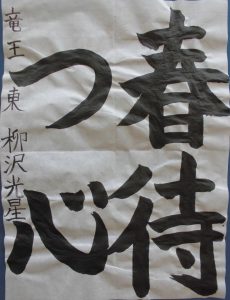 春待
つ心
竜王東 柳沢光星